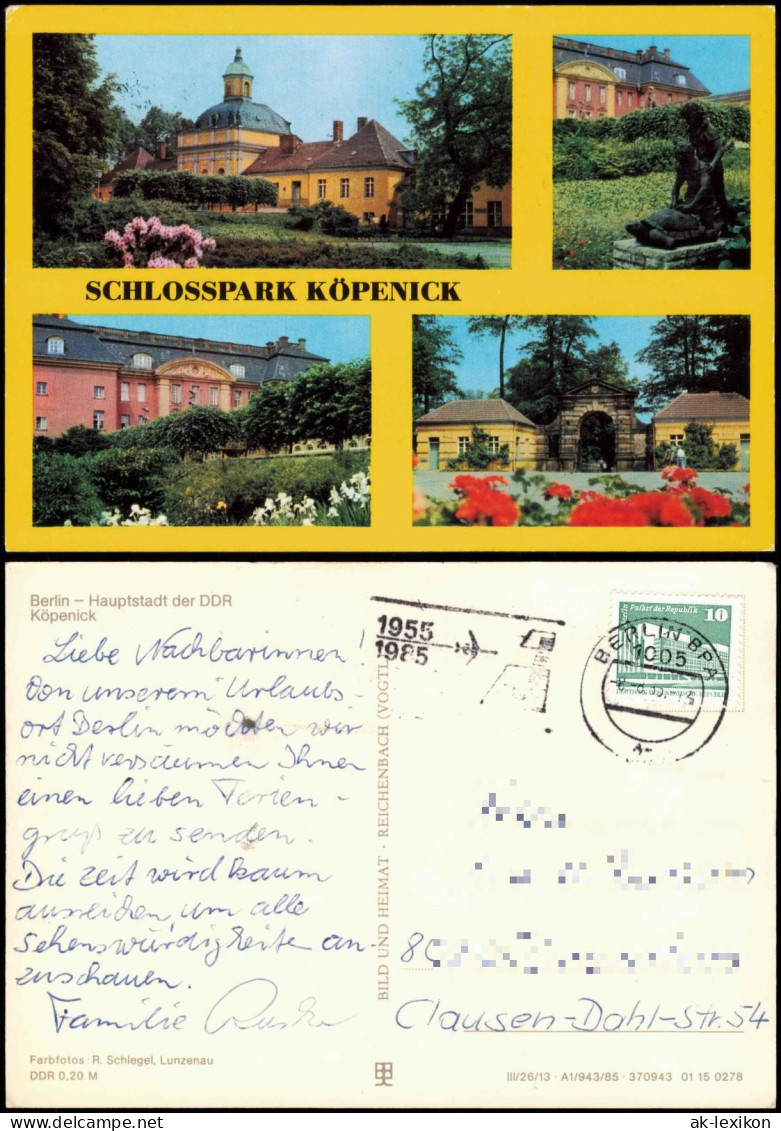 SCHLOSSPARK KÖPENICK
Berlin – Hauptstadt der DDR
Köpenick
Liebe Nachbarinnen!
Von unserem Urlaubs-
ort Berlin möchten wir
nicht versäumen Ihnen
einen lieben Ferien-
gruß zu senden.
Die Zeit wird kaum
ausreichen, um alle
Sehenswürdigkeite an-
zuschauen.
Familie
Farbfotos: R. Schlegel, Lunzenau
DDR 0,20 M
BILD UND HEIMAT · REICHENBACH (VOGTL
1955
1985
Berlin Palast der Republik 10
BERLIN BPA
1085
80
Clausen-Dahl-Str. 54
III/26/13 · A1/943/85 · 370943 01 15 0278
ak-lexikon